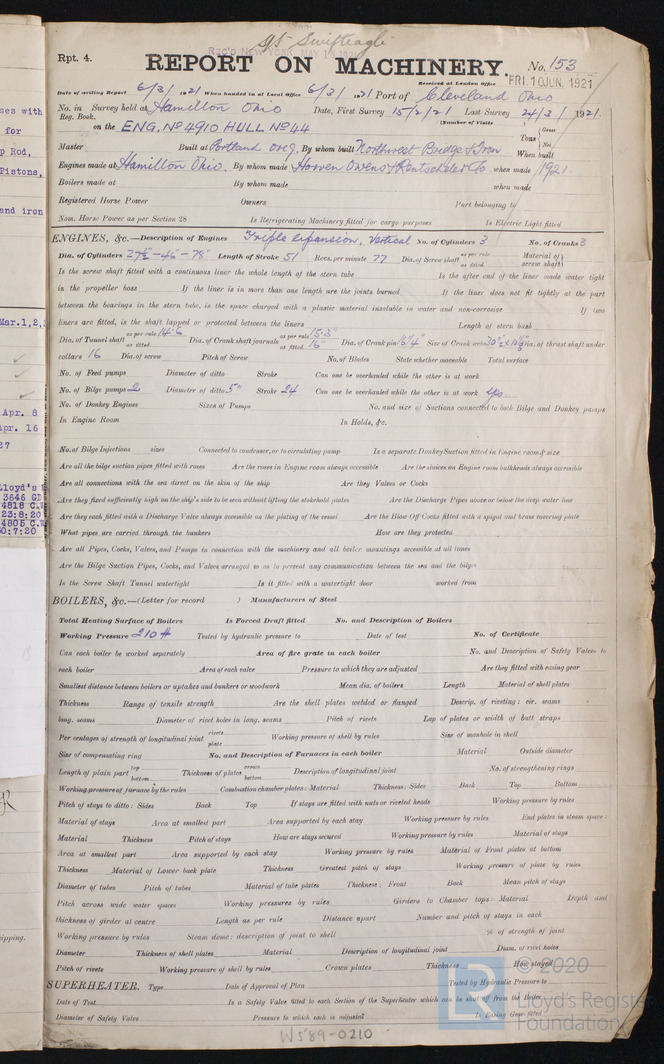 S/S Swifteagle
Rpt. 4.
REC'D NEW YORK MAY 1921
REPORT ON MACHINERY. No. 153
Received at London Office FRI. 10 JUN. 1921
Date of writing Report 6/3/1921 When handed in at Local Office 6/3/1921 Port of Cleveland Ohio
No. in Survey held at Hamilton Ohio Date, First Survey 15/2/21 Last Survey 24/3/1921
Reg. Book. (Number of Visits
on the ENG. Nº 4910 HULL Nº 44 Tons { Gross Net
Master Built at Portland Oreg. By whom built Northwest Bridge & Iron When built
Engines made at Hamilton Ohio. By whom made Hooven Owens & Rentschler Co. when made 1921.
Boilers made at By whom made when made
Registered Horse Power Owners Port belonging to
Nom. Horse Power as per Section 28 Is Refrigerating Machinery fitted for cargo purposes Is Electric Light fitted
ENGINES, &c.—Description of Engines Triple expansion, Vertical No. of Cylinders 3 No. of Cranks 3
Dia. of Cylinders 27½"-46"-78" Length of Stroke 51 Revs. per minute 77 Dia. of Screw shaft as per rule as fitted Material of screw shaft
Is the screw shaft fitted with a continuous liner the whole length of the stern tube Is the after end of the liner made water tight
in the propeller boss If the liner is in more than one length are the joints burned If the liner does not fit tightly at the part
between the bearings in the stern tube, is the space charged with a plastic material insoluble in water and non-corrosive If two
liners are fitted, is the shaft lapped or protected between the liners Length of stern bush
Dia. of Tunnel shaft as per rule 14.6 as fitted Dia. of Crank shaft journals as per rule 15.3" as fitted 16" Dia. of Crank pin 16¼" Size of Crank webs Dia. of thrust shaft under
collars 16 Dia. of screw Pitch of Screw No. of Blades State whether moveable Total surface
No. of Feed pumps Diameter of ditto Stroke Can one be overhauled while the other is at work
No. of Bilge pumps 2 Diameter of ditto 5" Stroke 24 Can one be overhauled while the other is at work yes
No. of Donkey Engines Sizes of Pumps No. and size of Suctions connected to both Bilge and Donkey pumps
In Engine Room In Holds, &c.
No. of Bilge Injections sizes Connected to condenser, or to circulating pump Is a separate Donkey Suction fitted in Engine room & size
Are all the bilge suction pipes fitted with roses Are the roses in Engine room always accessible Are the sluices on Engine room bulkheads always accessible
Are all connections with the sea direct on the skin of the ship Are they Valves or Cocks
Are they fixed sufficiently high on the ship's side to be seen without lifting the stokehold plates Are the Discharge Pipes above or below the deep water line
Are they each fitted with a Discharge Valve always accessible on the plating of the vessel Are the Blow Off Cocks fitted with a spigot and brass covering plate
What pipes are carried through the bunkers How are they protected
Are all Pipes, Cocks, Valves, and Pumps in connection with the machinery and all boiler mountings accessible at all times
Are the Bilge Suction Pipes, Cocks, and Valves arranged so as to prevent any communication between the sea and the bilges
Is the Screw Shaft Tunnel watertight Is it fitted with a watertight door worked from
BOILERS, &c.—(Letter for record ) Manufacturers of Steel
Total Heating Surface of Boilers Is Forced Draft fitted No. and Description of Boilers
Working Pressure 210 # Tested by hydraulic pressure to Date of test No. of Certificate
Can each boiler be worked separately Area of fire grate in each boiler No. and Description of Safety Valves to
each boiler Area of each valve Pressure to which they are adjusted Are they fitted with easing gear
Smallest distance between boilers or uptakes and bunkers or woodwork Mean dia. of boilers Length Material of shell plates
Thickness Range of tensile strength Are the shell plates welded or flanged Descrip. of riveting: cir. seams
long. seams Diameter of rivet holes in long. seams Pitch of rivets Lap of plates or width of butt straps
Per centages of strength of longitudinal joint rivets plate Working pressure of shell by rules Size of manhole in shell
Size of compensating ring No. and Description of Furnaces in each boiler Material Outside diameter
Length of plain part top bottom Thickness of plates crown bottom Description of longitudinal joint No. of strengthening rings
Working pressure of furnace by the rules Combustion chamber plates: Material Thickness: Sides Back Top Bottom
Pitch of stays to ditto: Sides Back Top If stays are fitted with nuts or riveted heads Working pressure by rules
Material of stays Area at smallest part Area supported by each stay Working pressure by rules End plates in steam space:
Material Thickness Pitch of stays How are stays secured Working pressure by rules Material of stays
Area at smallest part Area supported by each stay Working pressure by rules Material of Front plates at bottom
Thickness Material of Lower back plate Thickness Greatest pitch of stays Working pressure of plate by rules
Diameter of tubes Pitch of tubes Material of tube plates Thickness: Front Back Mean pitch of stays
Pitch across wide water spaces Working pressures by rules Girders to Chamber tops: Material Depth and
thickness of girder at centre Length as per rule Distance apart Number and pitch of stays in each
Working pressure by rules Steam dome: description of joint to shell % of strength of joint
Diameter Thickness of shell plates Material Description of longitudinal joint Diam. of rivet holes
Pitch of rivets Working pressure of shell by rules Crown plates Thickness How stayed
SUPERHEATER. Type Date of Approval of Plan Tested by Hydraulic Pressure to
Date of Test Is a Safety Valve fitted to each Section of the Superheater which can be shut off from the Boiler
Diameter of Safety Valve Pressure to which each is adjusted Is Easing Gear fitted
W589-0210
© 2020
Lloyd's Register
Foundation
ses with
for
p Rod,
Pistons,
and iron
Mar.1,2,
Apr. 8
Apr. 16
27
Lloyd's
3646 GD
4818 C.
23:8:20
4805 C.W
0:7:20
ipping.